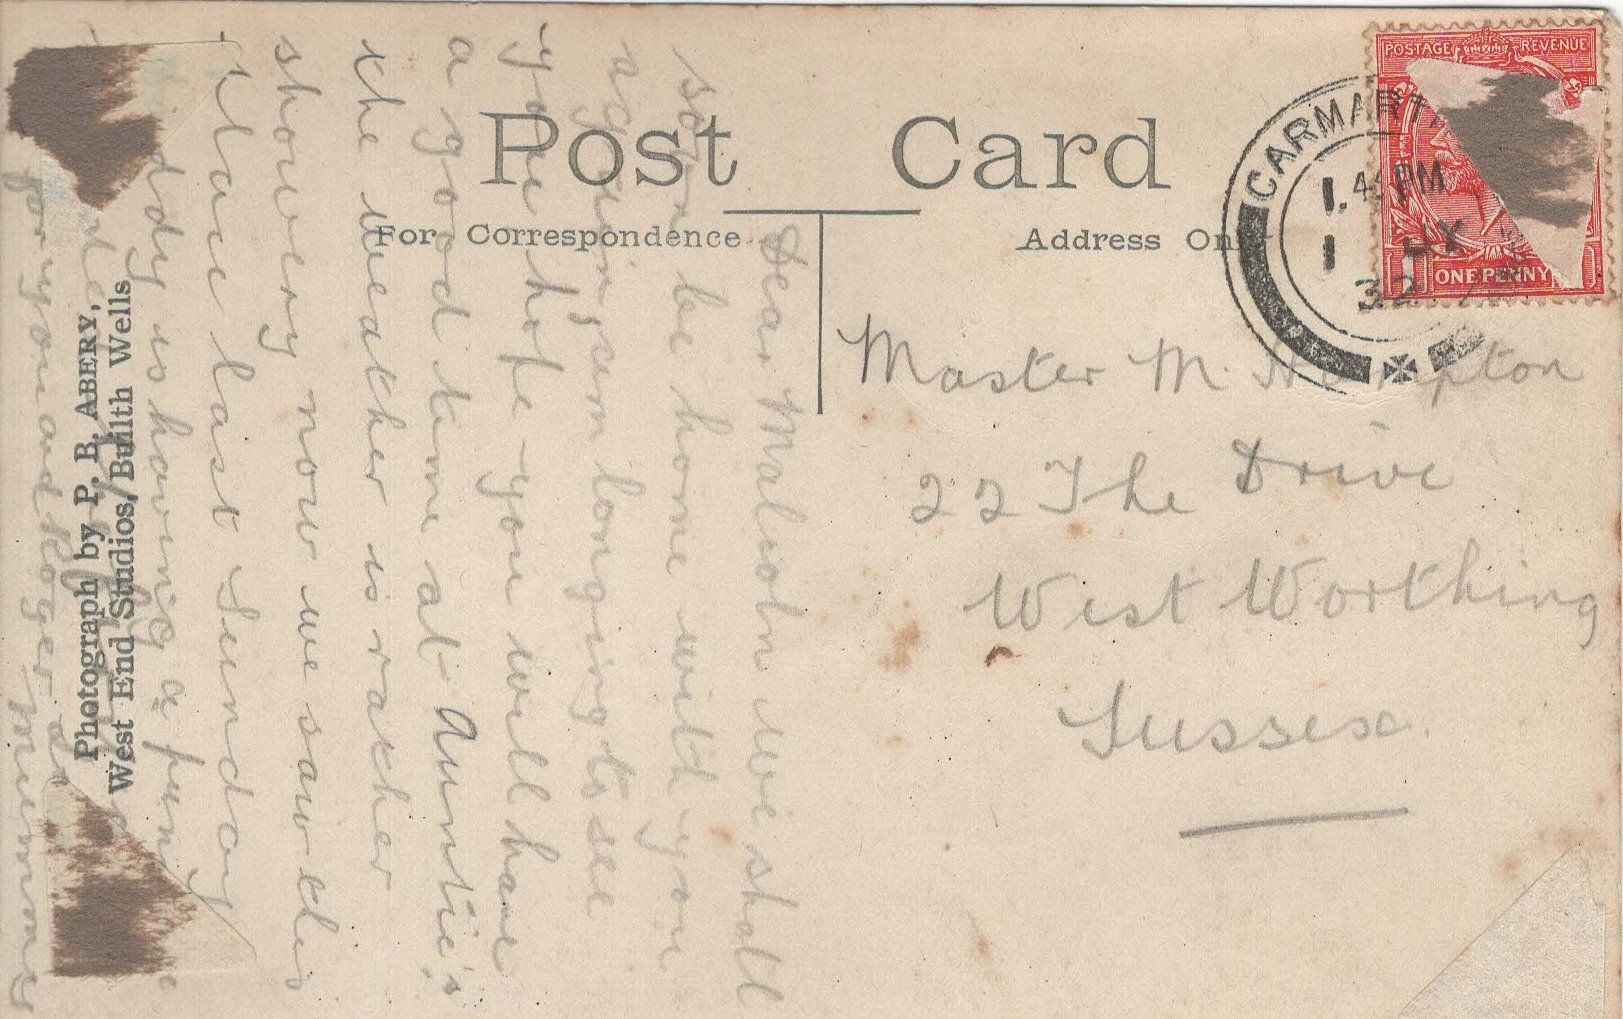 Post Card
For Correspondence
Address Only
POSTAGE REVENUE
ONE PENNY
CARMART
1.45 PM
1
32
Master M.
22 The Drive
West Worthing
Sussex
Dear Malcolm We shall
soon be home with you
again, am longing to see
you hope you will have
a good time at Auntie's
the weather is rather
showery now we saw this
place last Sunday
is having a fine
for you and Roger
Mummie
Photograph by P. B. ABERY,
West End Studios, Builth Wells